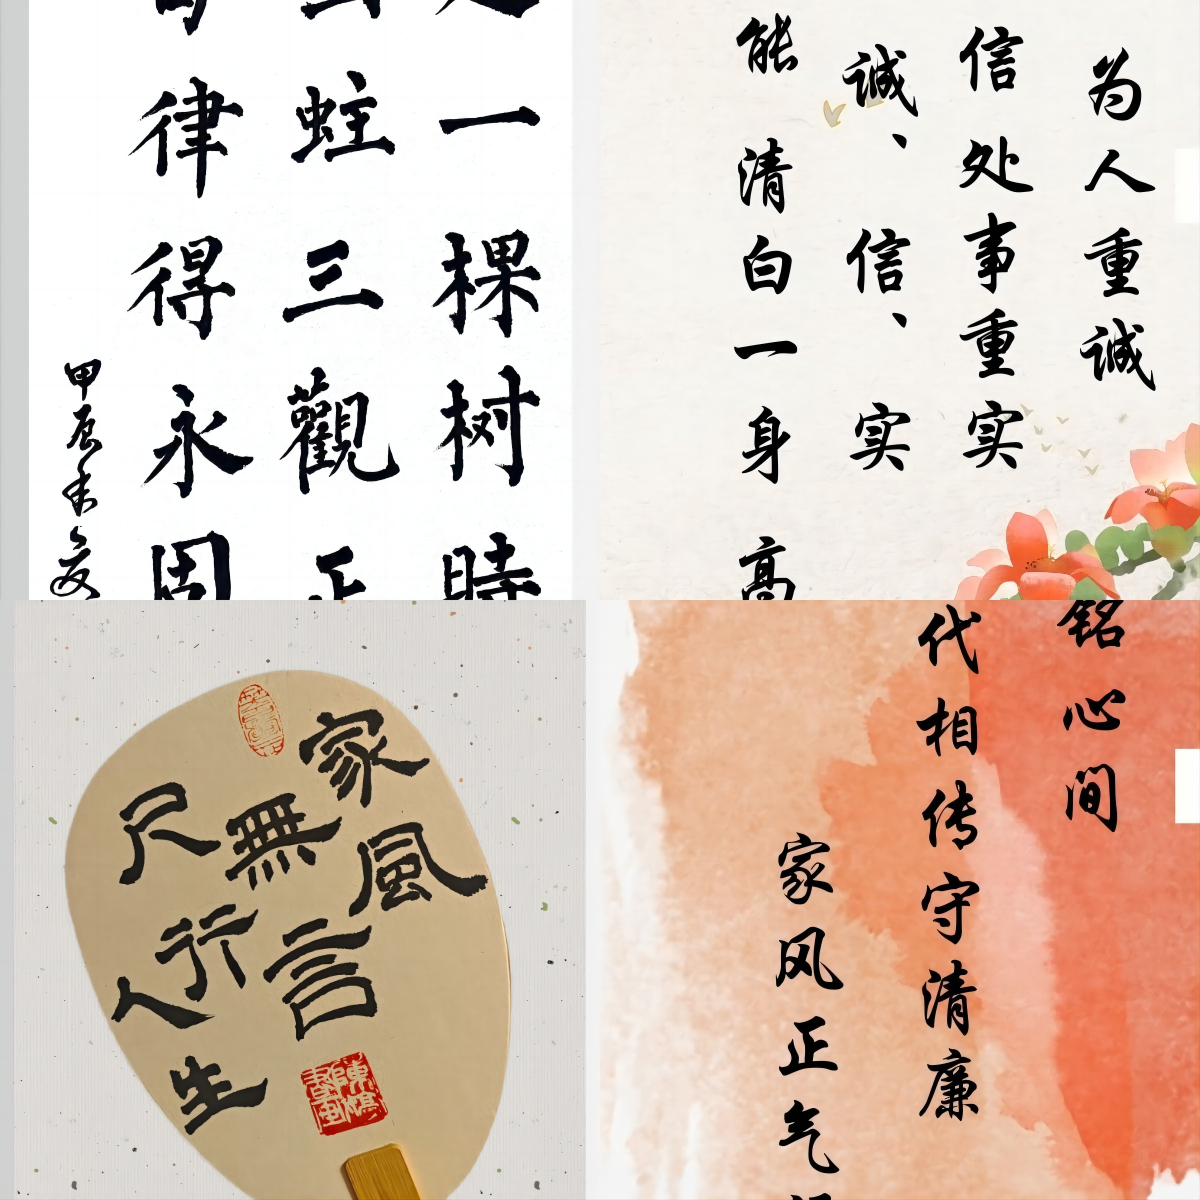 一棵树時
蛀三觀正
律得永固
甲辰
为人重诚
信处事重实
诚、信、实
能清白一身高
家風
無言
尺行人生
铭心间
代相传守清廉
家风正气